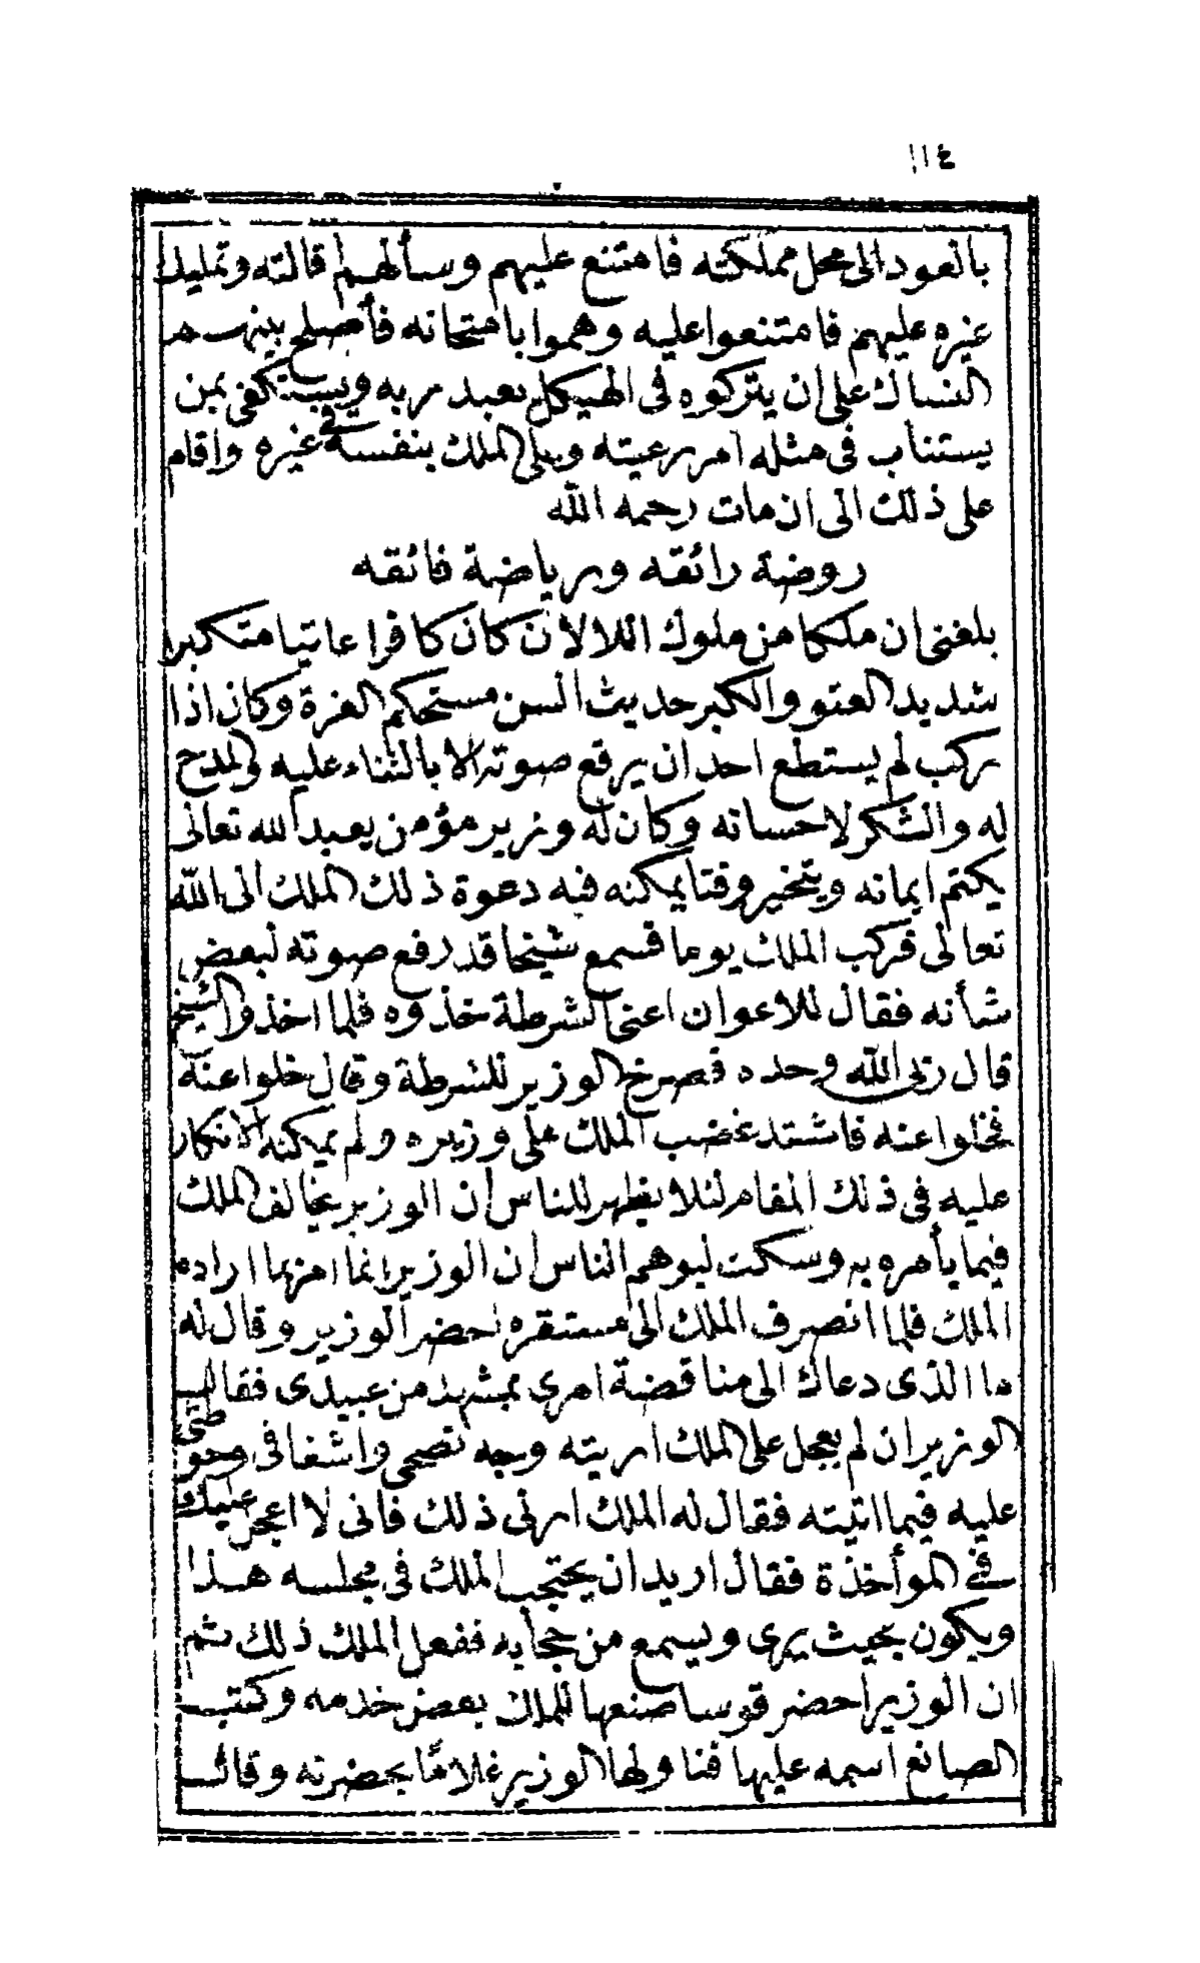 ١١٤
بالعود الى محل مملكته فامتنع عليهم وسألهم اقالته وتمليك
غيره عليهم فامتنعوا عليه وهموا بامتحانه فأصلح بينهم
النساك على ان يتركوه فى الهيكل يعبد ربه ويستكفى بمن
يستناب فى مثله امر رعيته ويلى الملك بنفسه فى غيره واقام
على ذلك الى ان مات رحمه الله
روضة رائقه ورياضة فائقه
بلغنى ان ملكا من ملوك اللالان كان كافرا عاتيا متكبرا
شديد العتو والكبر حديث السن مستحكم الغرة وكان اذا
ركب لم يستطع احد ان يرفع صوته الا بالثناء عليه والمدح
له والشكر لاحسانه وكان له وزير مؤمن يعبد الله تعالى
يكتم ايمانه ويتخير وقتا يمكنه فيه دعوة ذلك الملك الى الله
تعالى فركب الملك يوما فسمع شيخا قد رفع صوته لبعض
شأنه فقال للاعوان اعنى الشرطة خذوه فلما اخذوا الشيخ
قال ربى الله وحده فصرخ الوزير للشرطة وقال خلوا عنه
فخلوا عنه فاشتد غضب الملك على وزيره ولم يمكنه الانكار
عليه فى ذلك المقام لئلا يظهر للناس ان الوزير يخالف الملك
فيما يأمره به وسكت ليوهم الناس ان الوزير انما امر بما اراده
الملك فلما انصرف الملك الى مستقره احضر الوزير وقال له
ما الذى دعاك الى مناقضة امرى بمشهد من عبيدى فقال
الوزير ان لم يعجل على الملك اريته وجه نصحى واشفاقى وحوطتى
عليه فيما اتيته فقال له الملك ارنى ذلك فانى لا اعجل عليك
فى المؤأخذة فقال اريد ان يحتجب الملك فى مجلسه هذا
ويكون بحيث يرى ويسمع من حجابه ففعل الملك ذلك ثم
ان الوزير احضر قوسا صنعها للملك بعض خدمه وكتب
الصانع اسمه عليها فناولها الوزير غلامًا بحضرته وقال